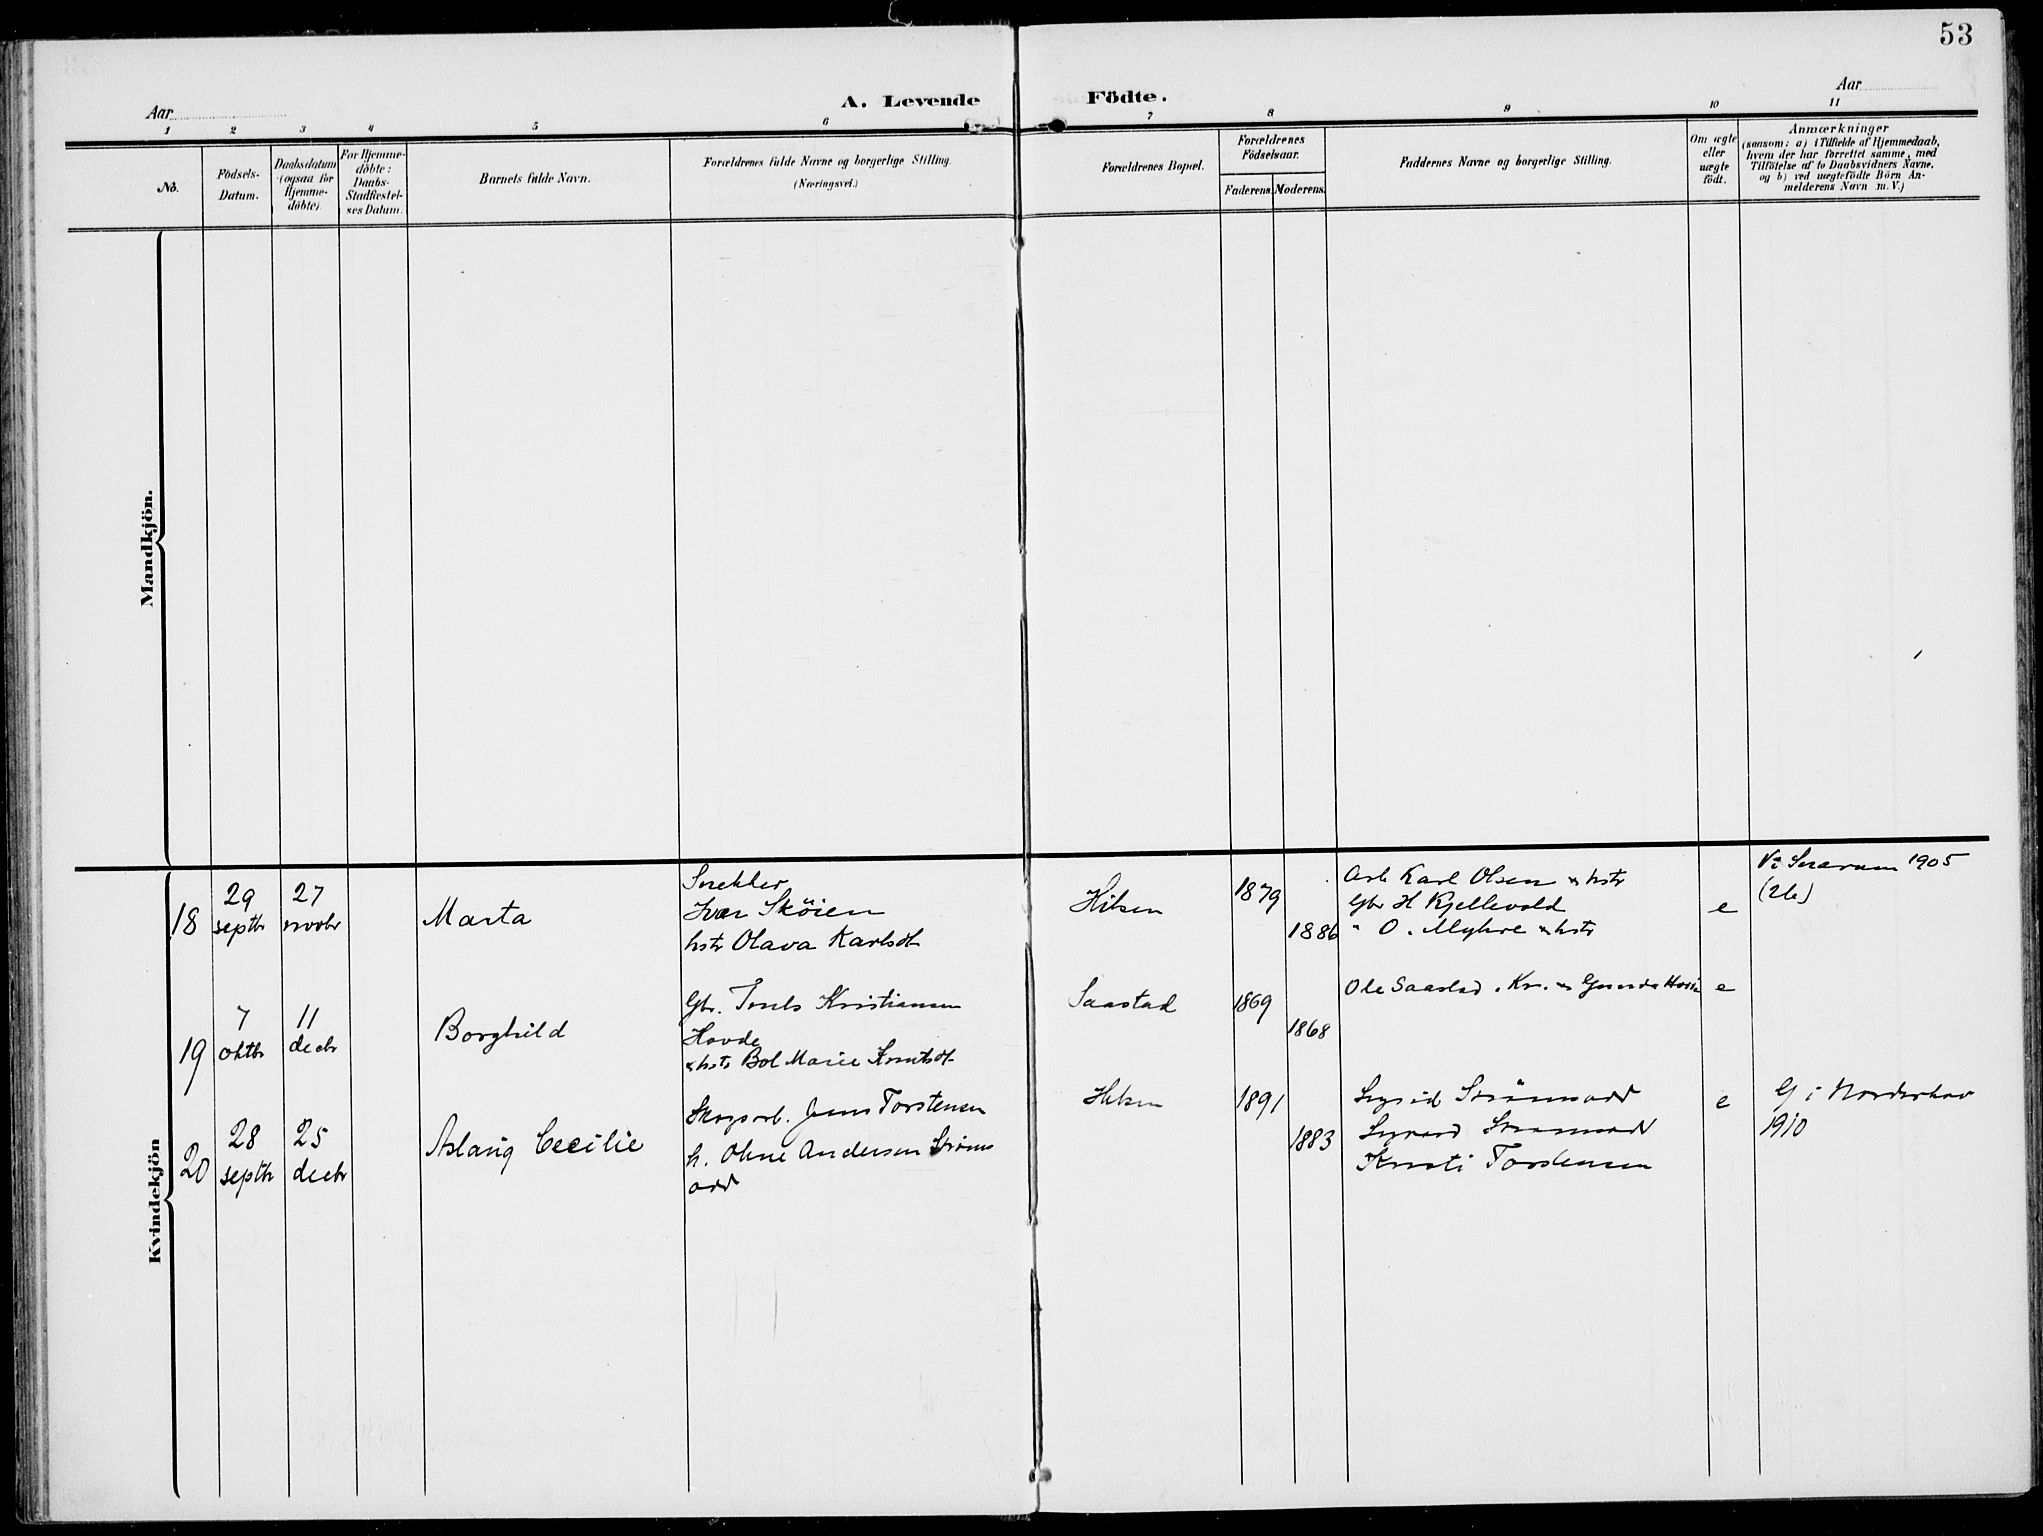 53
A. Levende Födte.
Aar
Aar
1 2 3 4 5 6 7 8 9 10 11
No.
Födsels-
Datum.
Daabsdatum
(ogsaa for
Hjemme-
döbte)
For Hjemme-
döbte:
Daabs-
Stadfæstel-
ses Datum.
Barnets fulde Navn.
Forældrenes fulde Navne og borgerlige Stilling.
(Næringsvei.)
Forældrenes Bopæl.
Forældrenes
Födselsaar.
Faderens.
Moderens.
Faddernes Navne og borgerlige Stilling.
Om ægte
eller
uægte
födt.
Anmærkninger
(saasom: a) i Tilfælde af Hjemmedaab,
hvem der har forrettet samme, med
Tilföielse af to Daabsvidners Navne,
og b) ved uægtefödte Börn An-
melderens Navn m. V.)
Mandkjön.
Kvindekjön
18
29
septbr
27
novbr
Marta
Snekker
Ivar Sköien
hstr Olava Karlsdt
1879
1886
Arb Karl Olsen hstr
Gbr H Kjellevold
" O. Myhre hstr
e
1905
19
7
oktbr
11
decbr
Borghild
Gbr. Kristiansen
Hovde
hstr Bol Marie
Saastad
1869
1868
Ole Saastad, Kr.
e
20
28
septbr
25
decbr
Aslaug Cecilie
Skogsarb. Jens Torstensen
h. Oline Andersen Ström-
odd
1891
1883
Sigrid Strömsodd
Torstensen
e
G i Norderhov
1910